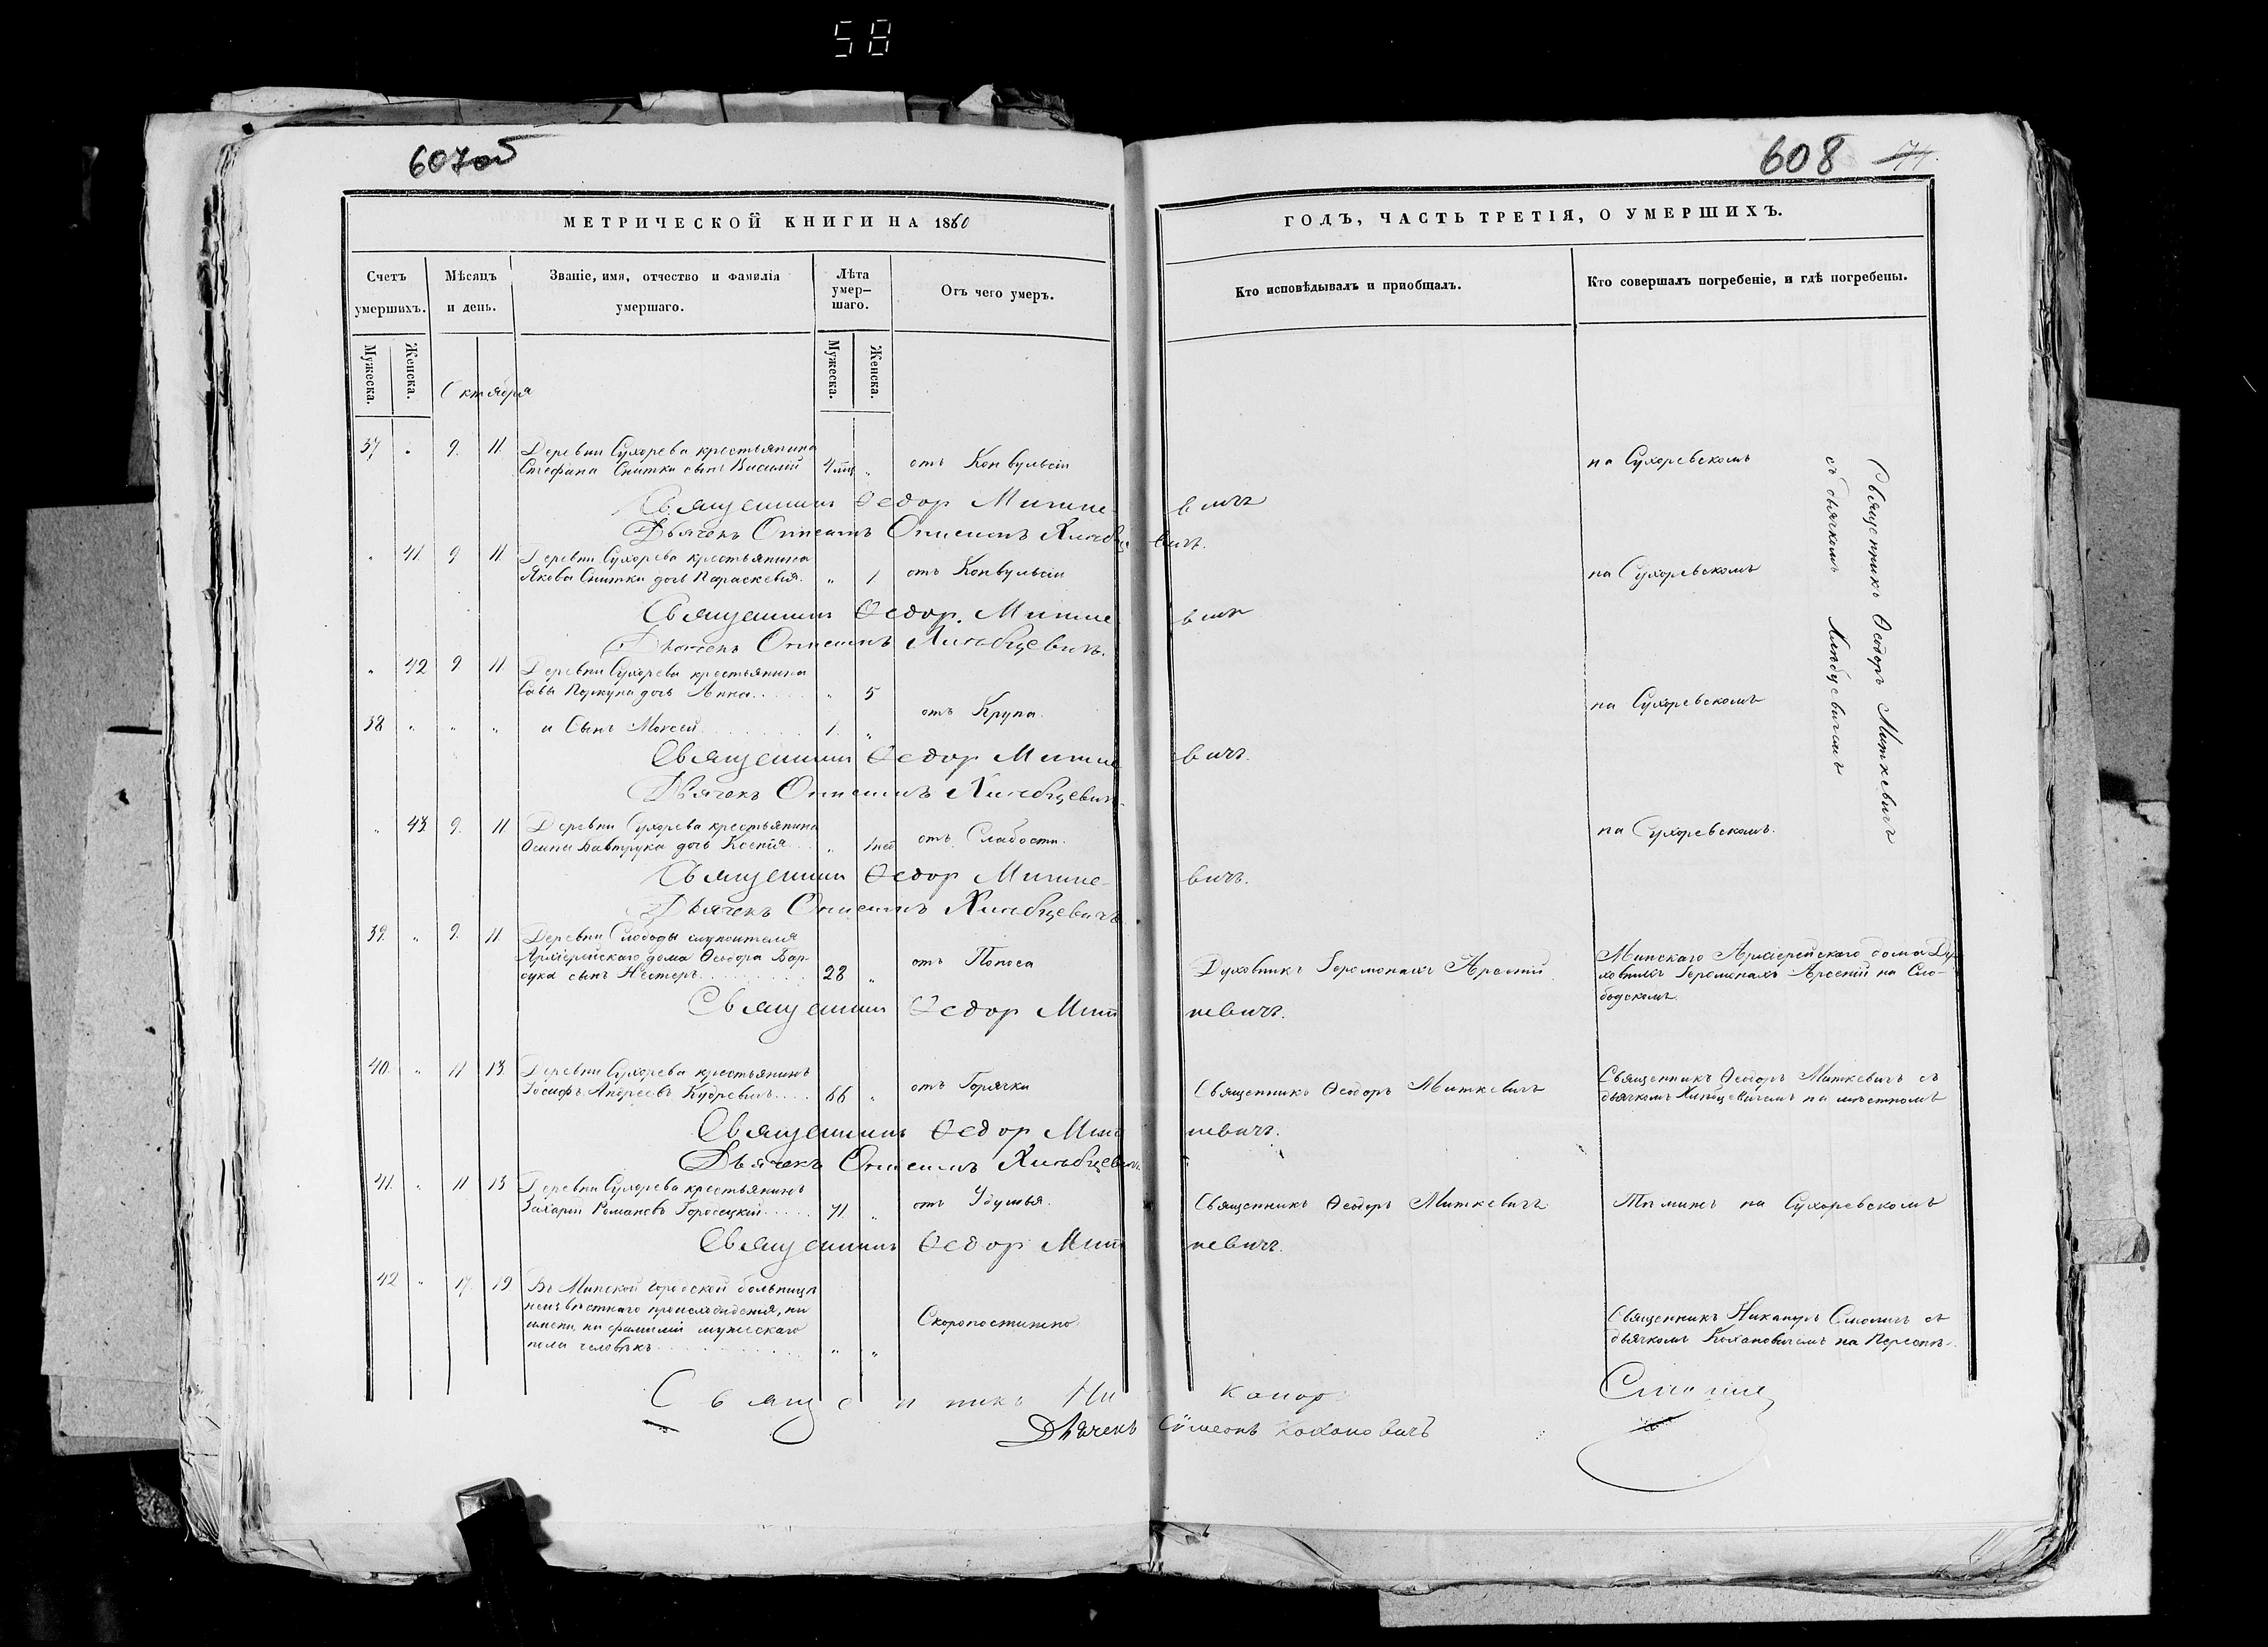 58
607об
608
МЕТРИЧЕСКОЙ КНИГИ НА 1860
ГОДЪ, ЧАСТЬ ТРЕТІЯ, О УМЕРШИХЪ.
Счетъ умершихъ.
Мѣсяцъ и день.
Званіе, имя, отчество и фамилія умершаго.
Лѣта умер-шаго.
Отъ чего умеръ.
Кто исповѣдывалъ и пріобщалъ.
Кто совершалъ погребеніе, и гдѣ погребены.
Мужеска. Женска.
Мужеска. Женска.
Октября
37 " 9. 11. Деревни Сухорева крестьянина
Стефана Снитки сынъ Василій 4 " отъ Конвульсіи на Сухоревскомъ
Священникъ Ѳеодоръ Миткевичъ
Дьячекъ Онисимъ Онисимъ Хлюбцевичъ.
" 41 9 11 Деревни Сухорева крестьянина
Якова Снитки дочь Параскевія. " 1 отъ Конвульсіи на Сухоревскомъ
Священникъ Ѳеодоръ Миткевичъ
Дьячекъ Онисимъ Хлюбцевичъ.
" 42 9 11 Деревни Сухорева крестьянина
Савы дочь Анна " 5
отъ Крупа. на Сухоревскомъ
38 " " " и Сынъ Моисей 1 "
Священникъ Ѳеодоръ Миткевичъ.
Дьячекъ Онисимъ Хлюбцевичъ.
" 43 9. 11 Деревни Сухорева крестьянина
Осипа Бавтрука дочь Ксенія " 1 нед отъ Слабости. на Сухоревскомъ.
Священникъ Ѳеодоръ Миткевичъ.
Дьячекъ Онисимъ Хлюбцевичъ
Священникъ Ѳеодоръ Миткевичъ
съ дьячкомъ Хлюбцевичемъ
39. " 9. 11. Деревни Слободы служителя
Архіерейскаго дома Ѳеодора Бар-
сука сынъ Несторъ 28 " отъ Поноса Духовникъ Іеромонахъ Арсеній Минскаго Архіерейскаго дома Ду-
ховникъ Іеромонахъ Арсеній на Сло-
бодскомъ.
Священникъ Ѳеодоръ Миткевичъ.
40. " 11 13 Деревни Сухорева крестьянинъ
Іосифъ Андреевъ Кудревичъ 66 " отъ Горячки Священникъ Ѳеодоръ Миткевичъ Священникъ Ѳеодоръ Миткевичъ съ
дьячкомъ Хлюбцевичемъ на мѣстномъ
Священникъ Ѳеодоръ Миткевичъ.
Дьячекъ Онисимъ Хлюбцевичъ.
41. " 11 13 Деревни Сухорева крестьянинъ
Захарій Романовъ Городецкій 71 " отъ Удушья. Священникъ Ѳеодоръ Миткевичъ Тѣмижъ на Сухоревскомъ
Священникъ Ѳеодоръ Миткевичъ.
42 " 17. 19 Въ Минской городской больницѣ
неизвѣстнаго происхожденія, ни
имени, ни фамиліи мужескаго
пола человѣкъ " " Скоропостижно Священникъ Никаноръ Смоличъ съ
дьячкомъ Кохановичемъ на Переспѣ.
Священникъ Никаноръ Смоличъ
Дьячекъ Сѵмеонъ Кохановичъ